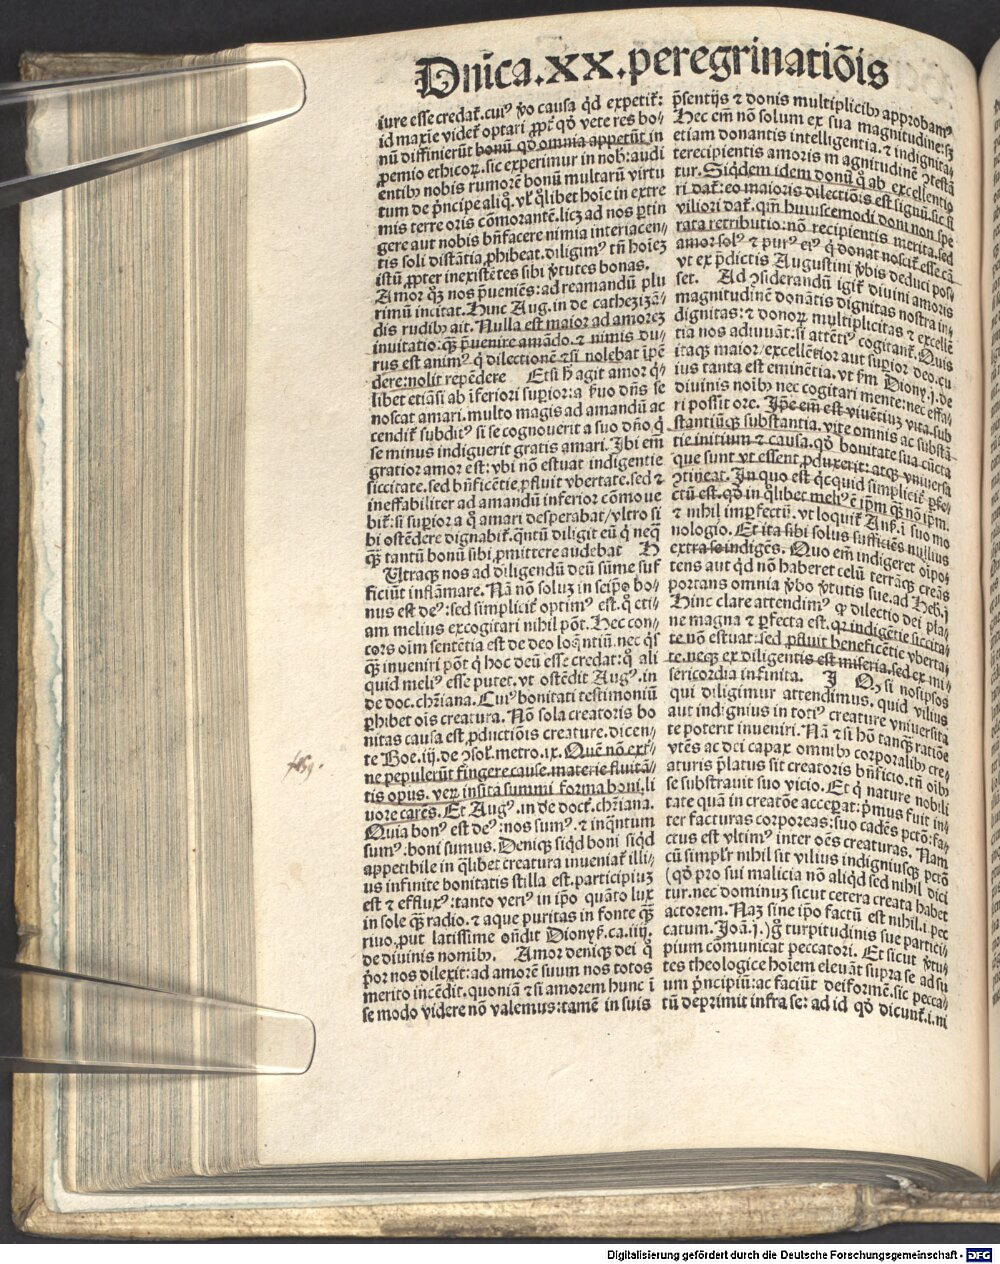 Dnīca.XX.peregrinatiōis
iure esse credat̄.cuiꝰ ꝟo causa qd̄ expetit̄:
id maxīe videt̄ optari ꝓpt̄ qḋ vete res bo⸗
nū diffinierūt bonū qḋ omnia appetūt.in
ꝓemio ethicoꝝ.sic experimur in nob̄:audi
entibꝰ nobis rumorē bonū multarū virtu
tum de p̄ncipe aliꝙ.vl̄ ꝗlibet hoīe in extre
mis terre oris cōmorantē.licꝫ ad nos ꝑtin
gere aut nobis bn̄facere nimia interiacen⸗
tis soli distātia ꝓhibeat.diligimꝰ tn̄ hoīeꝫ
istū ꝓpter inexistētes sibi ꝟtutes bonas.
Amor qꝫ nos p̄ueniēs:ad reamandū plu
rimū incitat.Hinc Aug.in de cathezizā⸗
dis rudibꝰ ait.Nulla est maior ad amoreꝫ
inuitatio:qꝫ p̄uenire amādo.⁊ nimis du⸗
rus est animꝰ q dilectionē ⁊si nolebat īpē
dere:nolit repēdere Etsi h̄ agit amor q⸗
libet etiāsi ab īferiori suꝑior:a ẜuo dn̄s se
noscat amari.multo magis ad amandū ac
cendit̄ subditꝰ si se cognouerit a suo dn̄o q
se minus indiguerit gratis amari.Ibi em̄
gratior amor est:vbi nō estuat indigentie
siccitate.sed bn̄ficētie ꝓfluit vbertate.sed ⁊
ineffabiliter ad amandū inferior cōmoue
bit̄:si suꝑior a q̊ amari desperabat/vltro si
bi ostēdere dignabit̄.qntū diligit eū q neq̄
qꝫ tantū bonū sibi ꝓmittere audebat H
Vtraqꝫ nos ad diligendū deū sūme suf
ficiūt inflāmare.Nā nō soluꝫ in seip̄o bo⸗
nus est deꝰ:sed simplicit̄ optimꝰ est.q̊ eti⸗
am melius excogitari nihil pōt.Hec con⸗
cors oīm sentētia est de deo loq̄ntiū.nec q̊s
qꝫ inueniri pōt q hoc deū esse credat:q̊ ali
quid meliꝰ esse putet.vt ostēdit Augꝰ.in
de doc.chr̄iana.Cuiꝰ bonitati testimoniū
ꝑhibet oīs creatura.Nā sola creatoris bo
nitas causa est ꝓductiōis creature.dicen⸗
te Boe.iij.de ꝯsol̄.metro.ix.Quē nō ext̄⸗
ne pepulerūt fingere cause.materie fluitā⸗
tis opus.veꝝ insita summi forma boni.li
uore carēs.Et Augꝰ.in de doct̄.chr̄iana.
Quia bonꝰ est deꝰ:nos sumꝰ.⁊ inq̄ntum
sumꝰ:boni sumus.Deniqꝫ siqd boni siqd
appetibile in qlibet creatura inueniat̄ illi⸗
us infinite bonitatis stilla est.participiuꝫ
est ⁊ effluxꝰ:tanto veriꝰ in ip̄o quāto lux
in sole qꝫ radio.⁊ aque puritas in fonte qꝫ
riuo.ꝓut latissime on̄dit Dionyẜ.ca.iiij.
de diuinis nomibꝰ. Amor deniqꝫ dei q̊
p̄or nos dilexit:ad amorē suum nos totos
merito incēdit.quoniā ⁊si amorem hunc ī
se modo videre nō valemus:tamē in suis
p̄sentijs ⁊ donis multiplicibꝰ approbamꝰ
Hec em̄ nō solum ex sua magnitudine:sꝫ
etiam donantis intelligentia.⁊ indignita⸗
terecipientis amoris magnitudinē ꝯtestā
tur.Siqdem idem donū q̊ ab excellentio
ri dat̄:eo maioris dilectiōis est signū.sic si
viliori dat̄.qm̄ huiuscemodi doni non spe
rata retributio:nō recipientis merita.sed
amor solꝰ ⁊ purꝰ eiꝰ q donat noscit̄ esse.cā
vt ex p̄dictis Augustini ꝟbis deduci pos⸗
set. Ad ꝯsiderandū igit̄ diuini amoris
magnitudinē donātis dignitas nostra in⸗
dignitas:⁊ donoꝝ multiplicitas ⁊ excellē
tia nos adiuuāt:si attētiꝰ cogitant̄.Quis
itaqꝫ maior/excellētior aut suꝑior deo.cu
ius tanta est eminētia.vt ẜm Dionẏ.j.de
diuinis noībꝰ nec cogitari mente:nec effa⸗
ri possit ore.Ip̄e em̄ est viuētiuꝫ vita.sub
stantiūqꝫ substantia.vite omnis ac substā⸗
tie initium ⁊ causa.qḋ bonitate sua cūcta
que sunt vt essent ꝓduxerit:atqꝫ vniuersa
ꝯtineat.In quo est qcquid simplicit̄ ꝑfe⸗
ctū est.qḋ in qlibet meliꝰ ē ip̄m qꝫ nō ip̄m.
⁊ nihil imꝑfectū.vt loquit̄ Anẜ.ī suo mo
nologio.Et ita sibi solus sufficiēs nullius
extra se indigēs.Quo em̄ indigeret oīpo⸗
tens aut qd nō haberet celū terrāqꝫ creās
portans omnia ꝟbo ꝟtutis sue.ad Heb.j
Hinc clare attendimꝰ ꝙ dilectio dei pla⸗
ne magna ⁊ ꝑfecta est.qꝛ indigētie siccita⸗
te nō estuat:sed ꝓfluit beneficētie vberta⸗
te.neqꝫ ex diligentis est miseria.sed ex mi⸗
sericordia infinita. I Qꝫ si nosipsos
qui diligimur attendimus.quid vilius
aut indignius in totiꝰ creature vniuersita
te poterit inueniri.Nā ⁊si hō tanqꝫ ratiōe
vtēs ac dei capax omnibꝰ corporalibꝰ cre⸗
aturis p̄latus sit creatoris bn̄ficio.tn̄ oībꝰ
se substrauit suo vicio.Et q̊ nature nobili
tate quā in creatōe acceꝑat:p̄mus fuit in⸗
ter facturas corporeas:suo cadēs pctō:fa⸗
ctus est vltimꝰ inter oēs creaturas.Nam
cū simplr̄ nihil sit vilius indigniusqꝫ pctō
(qḋ pro sui malicia nō aliqd sed nihil dici
tur.nec dominuꝫ sicut cetera creata habet
actorem.Naꝫ sine ip̄o factū est nihil.i.pec
catum.Joā.j.)g̊ turpitudinis sue partici⸗
pium cōmunicat peccatori.Et sicut ꝟtu⸗
tes theologice hoīem eleuāt supra se ad su
um p̄ncipiū:ac faciūt deiformē.sic pecca⸗
tū deprimit infra se:ad id qḋ dicunt̄.i.ni
Digitalisierung gefördert durch die Deutsche Forschungsgemeinschaft - DFG